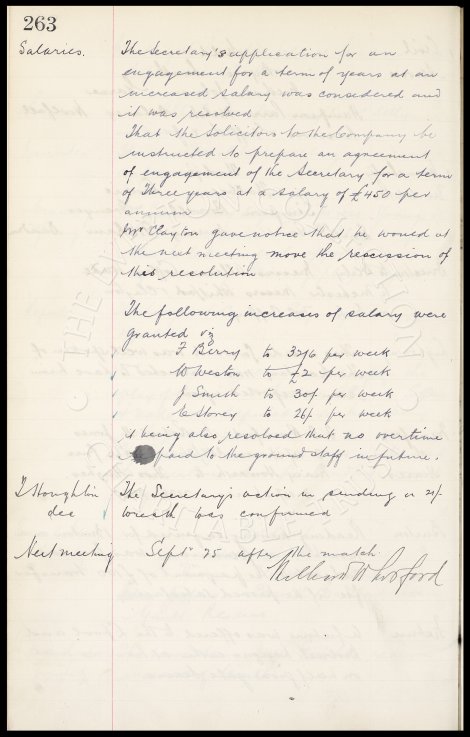 263
Salaries. The Secretary's application for an
engagement for a term of years at an
increased salary was considered and
it was resolved
That the Solicitors to the Company be
instructed to prepare an agreement
of engagement of the Secretary for a term
of Three years at a salary of £450 per
annum
Mr Clayton gave notice that he would at
the next meeting move the rescission of
this resolution
The following increases of salary were
granted viz
F Berry to 32/6 per week
W Weston to £2 per week
J Smith to 30/ per week
E Storey to 26/ per week
it being also resolved that no overtime
paid to the ground staff in future.
T Houghton The Secretary's action in sending a 21/-
dec wreath was confirmed
Next meeting Sept 25 after the match